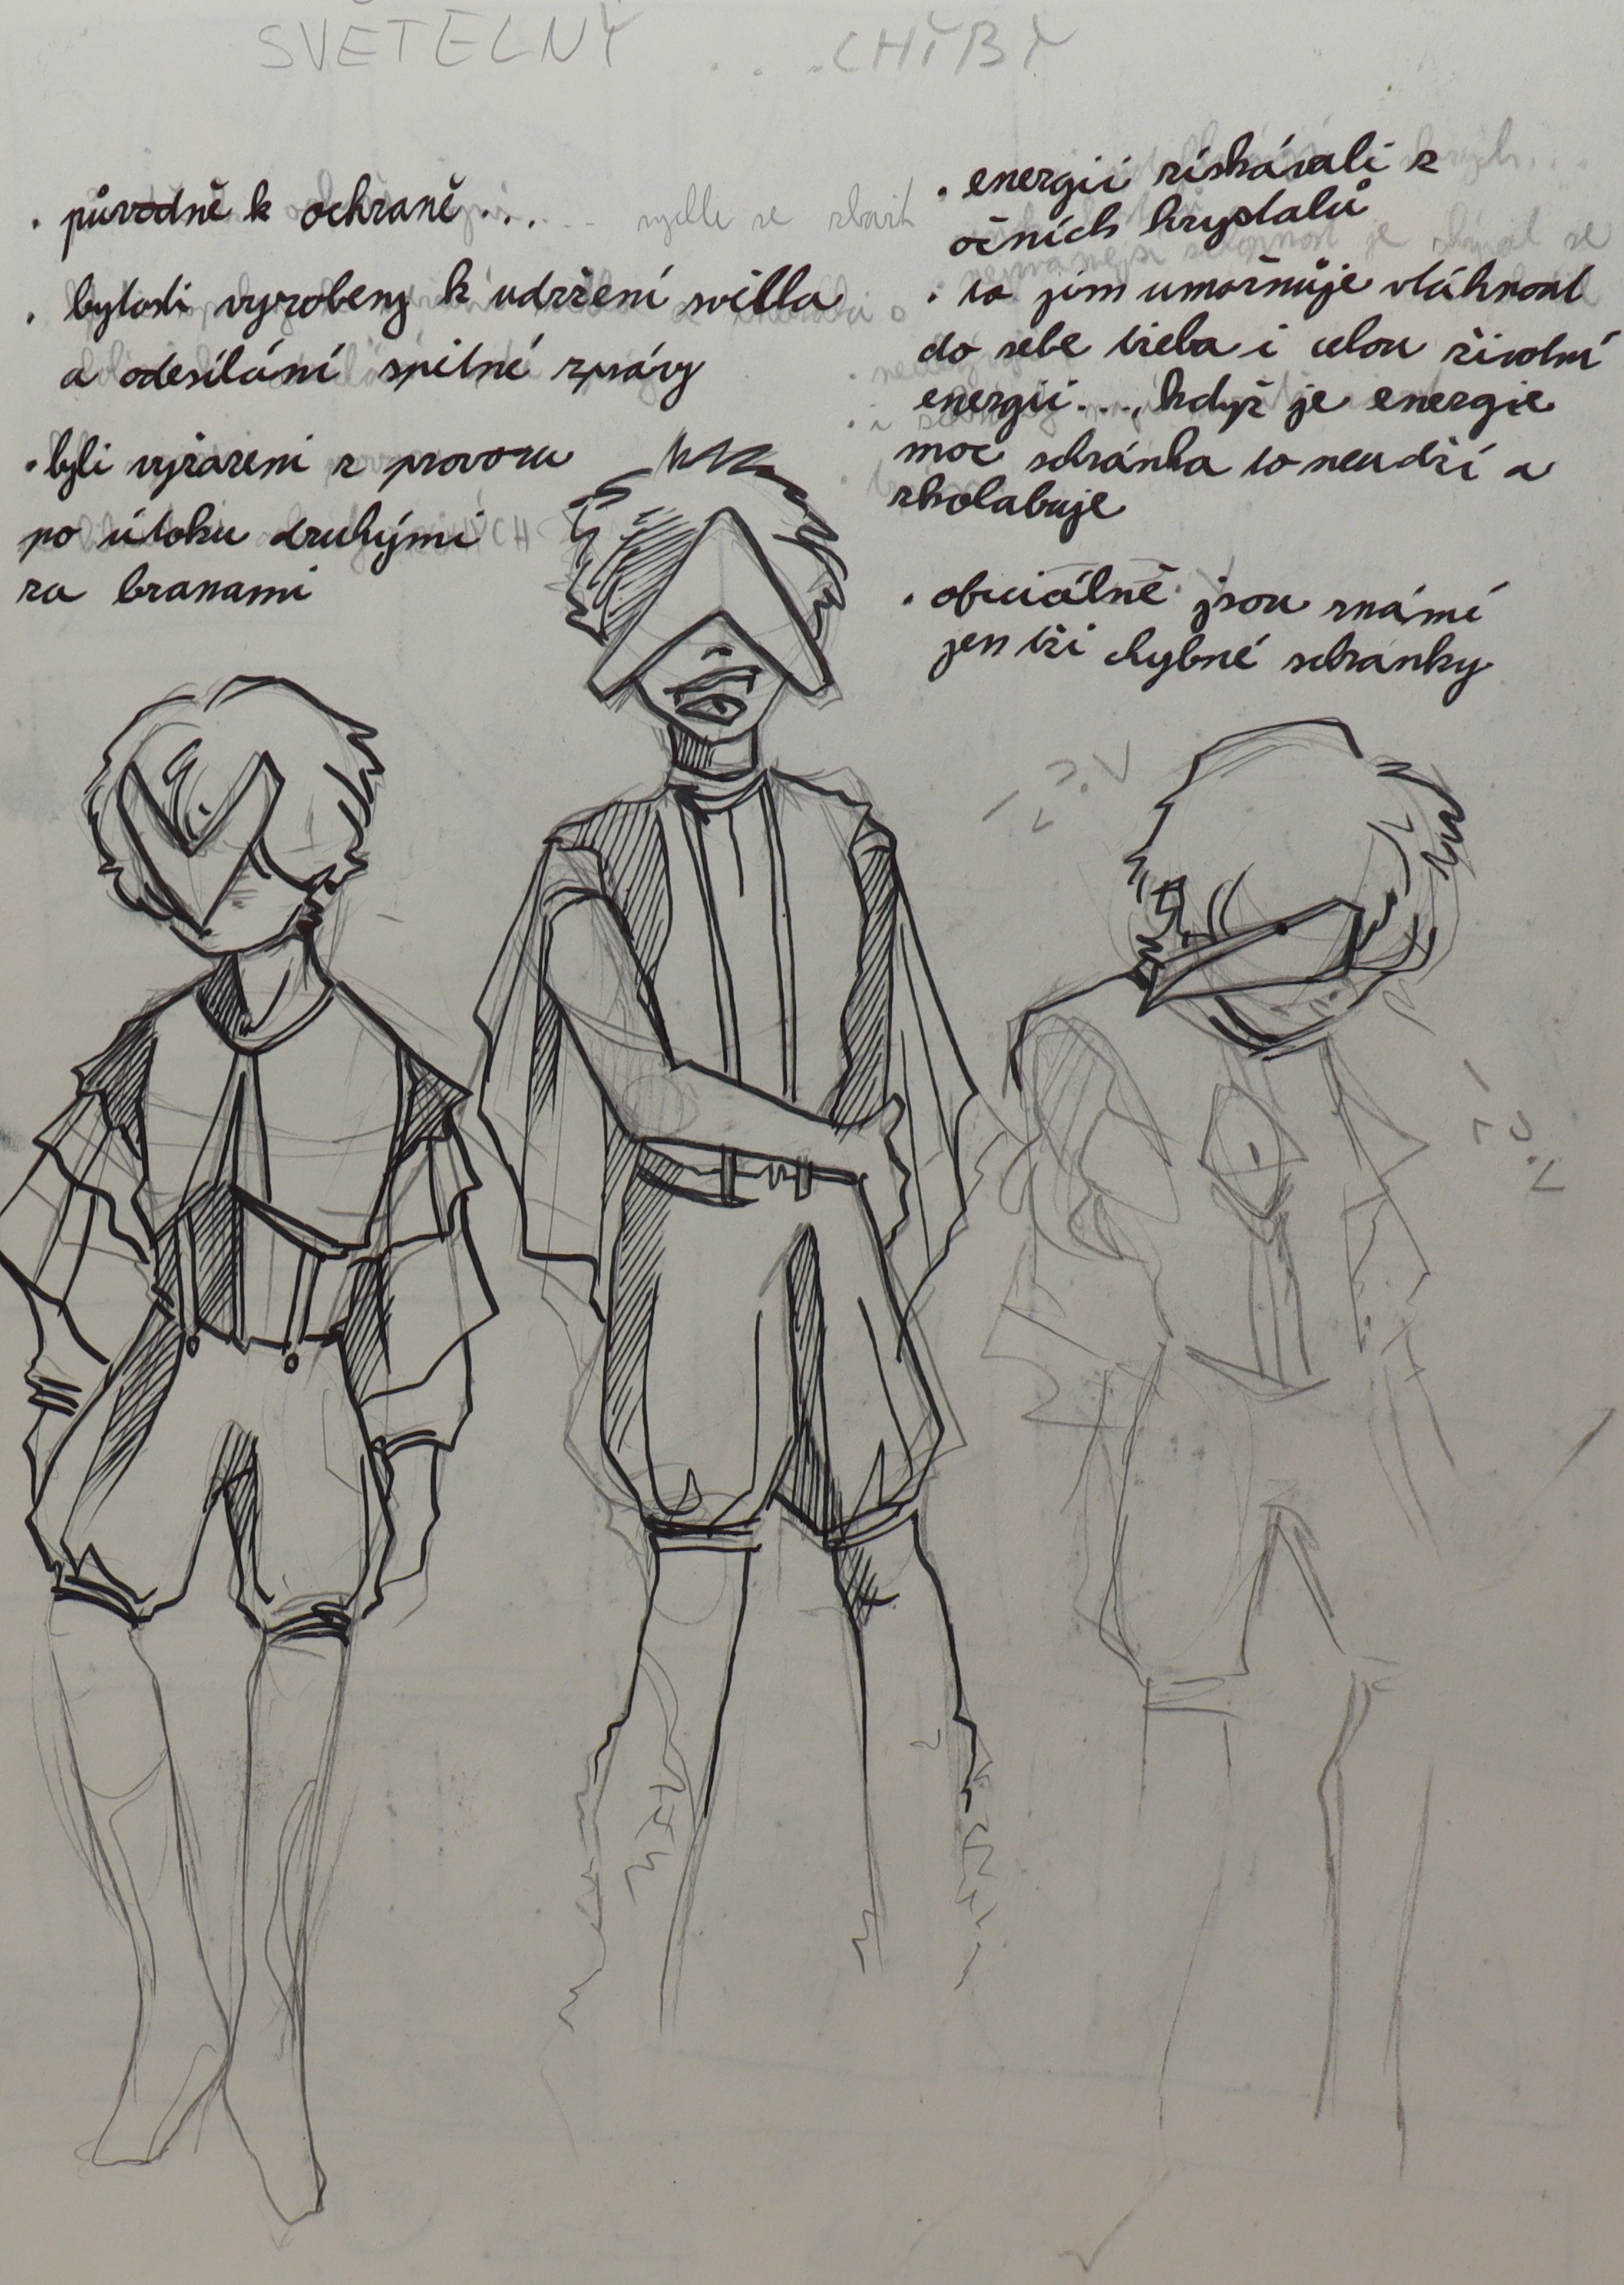 SVĚTELNÝ . . . . CHYBY
. původně k ochraně ...
. bytosti vyrobeny k udržení světla
a odesílání zpětné zprávy
. byli vyřazeni z provozu
po útoku druhými
za branami
. energii získávali z
očních krystalů
. to jim umožňuje vtáhnout
do sebe třeba i celou životní
energii..., když je energie
moc schránka to neudrží a
zkolabuje
. oficiálně jsou známé
jen tři chybné schránky